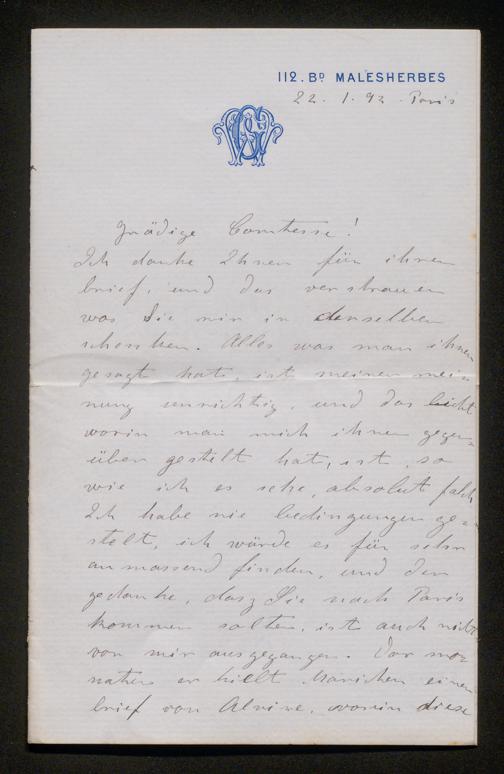 112. BD MALESHERBES
22. 1. 92. Paris
Gnädige Comtesse!
Ich danke Ihnen für ihren
brief, und das verstrauen
was Sie mir in denselben
schenken. Alles was man ihnen
gesagt hat, ist meiner mein
nung unrichtig, und das licht
worin man mich ihnen gegen
über gestelt hat, ist, so
wie ich es sehe, absolut falch
Ich habe nie bedingungen ge-
stelt, ich würde es für sehr
anmassend finden, und den
gedanke, dasz Sie nach Paris
kommen solten, ist auch nicht
von mir ausgegangen. Vor mo
naten erhielt Mariechen einen
brief von Alvine, worin diese